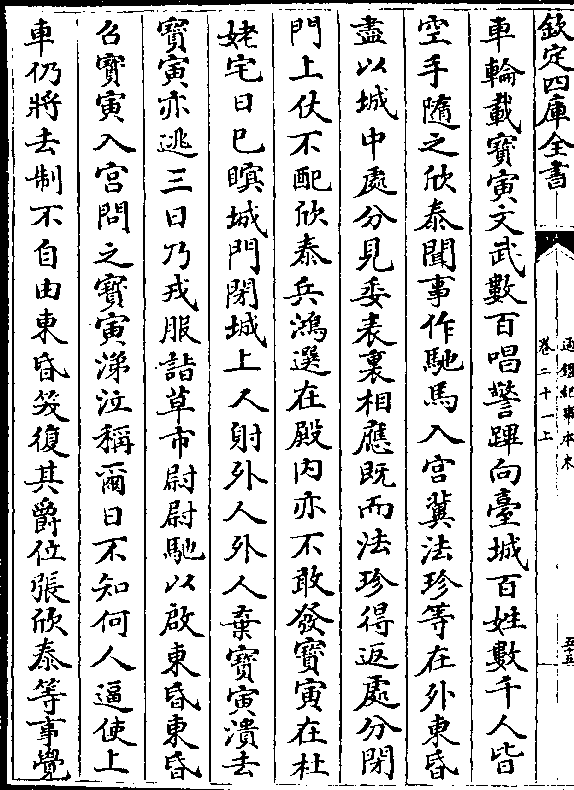 欽定四庫全書
通鑑紀事本末
卷二十一上
五十五
車輪載寶寅文武數百唱警蹕向臺城百姓數千人皆
空手隨之欣泰聞事作馳馬入宮冀法珍等在外東昏
盡以城中處分見委表裏相應既而法珍得返處分閉
門上仗不配欣泰兵鴻選在殿内亦不敢發寶寅在杜
姥宅日已暝城門閉城上人射外人外人棄寶寅潰去
寶寅亦逃三日乃戎服詣草市尉尉馳以啟東昏東昏
召寶寅入宮問之寶寅涕泣稱爾日不知何人逼使上
車仍將去制不自由東昏笑復其爵位張欣泰等事覺